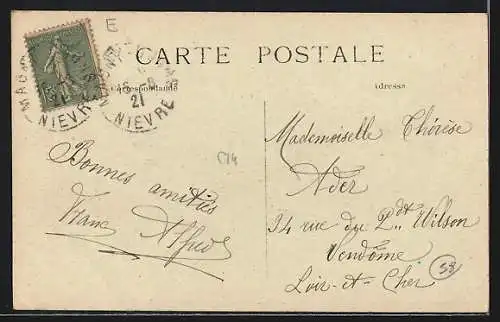 E
CARTE POSTALE
Correspondance
Adresse
NIEVRE
21
NIEVRE
C14
Bonnes amitiés
Franc Alfred
Mademoiselle Thérèse
Ader
34 rue du Pdt Wilson
Vendôme
Loir-et-Cher
58